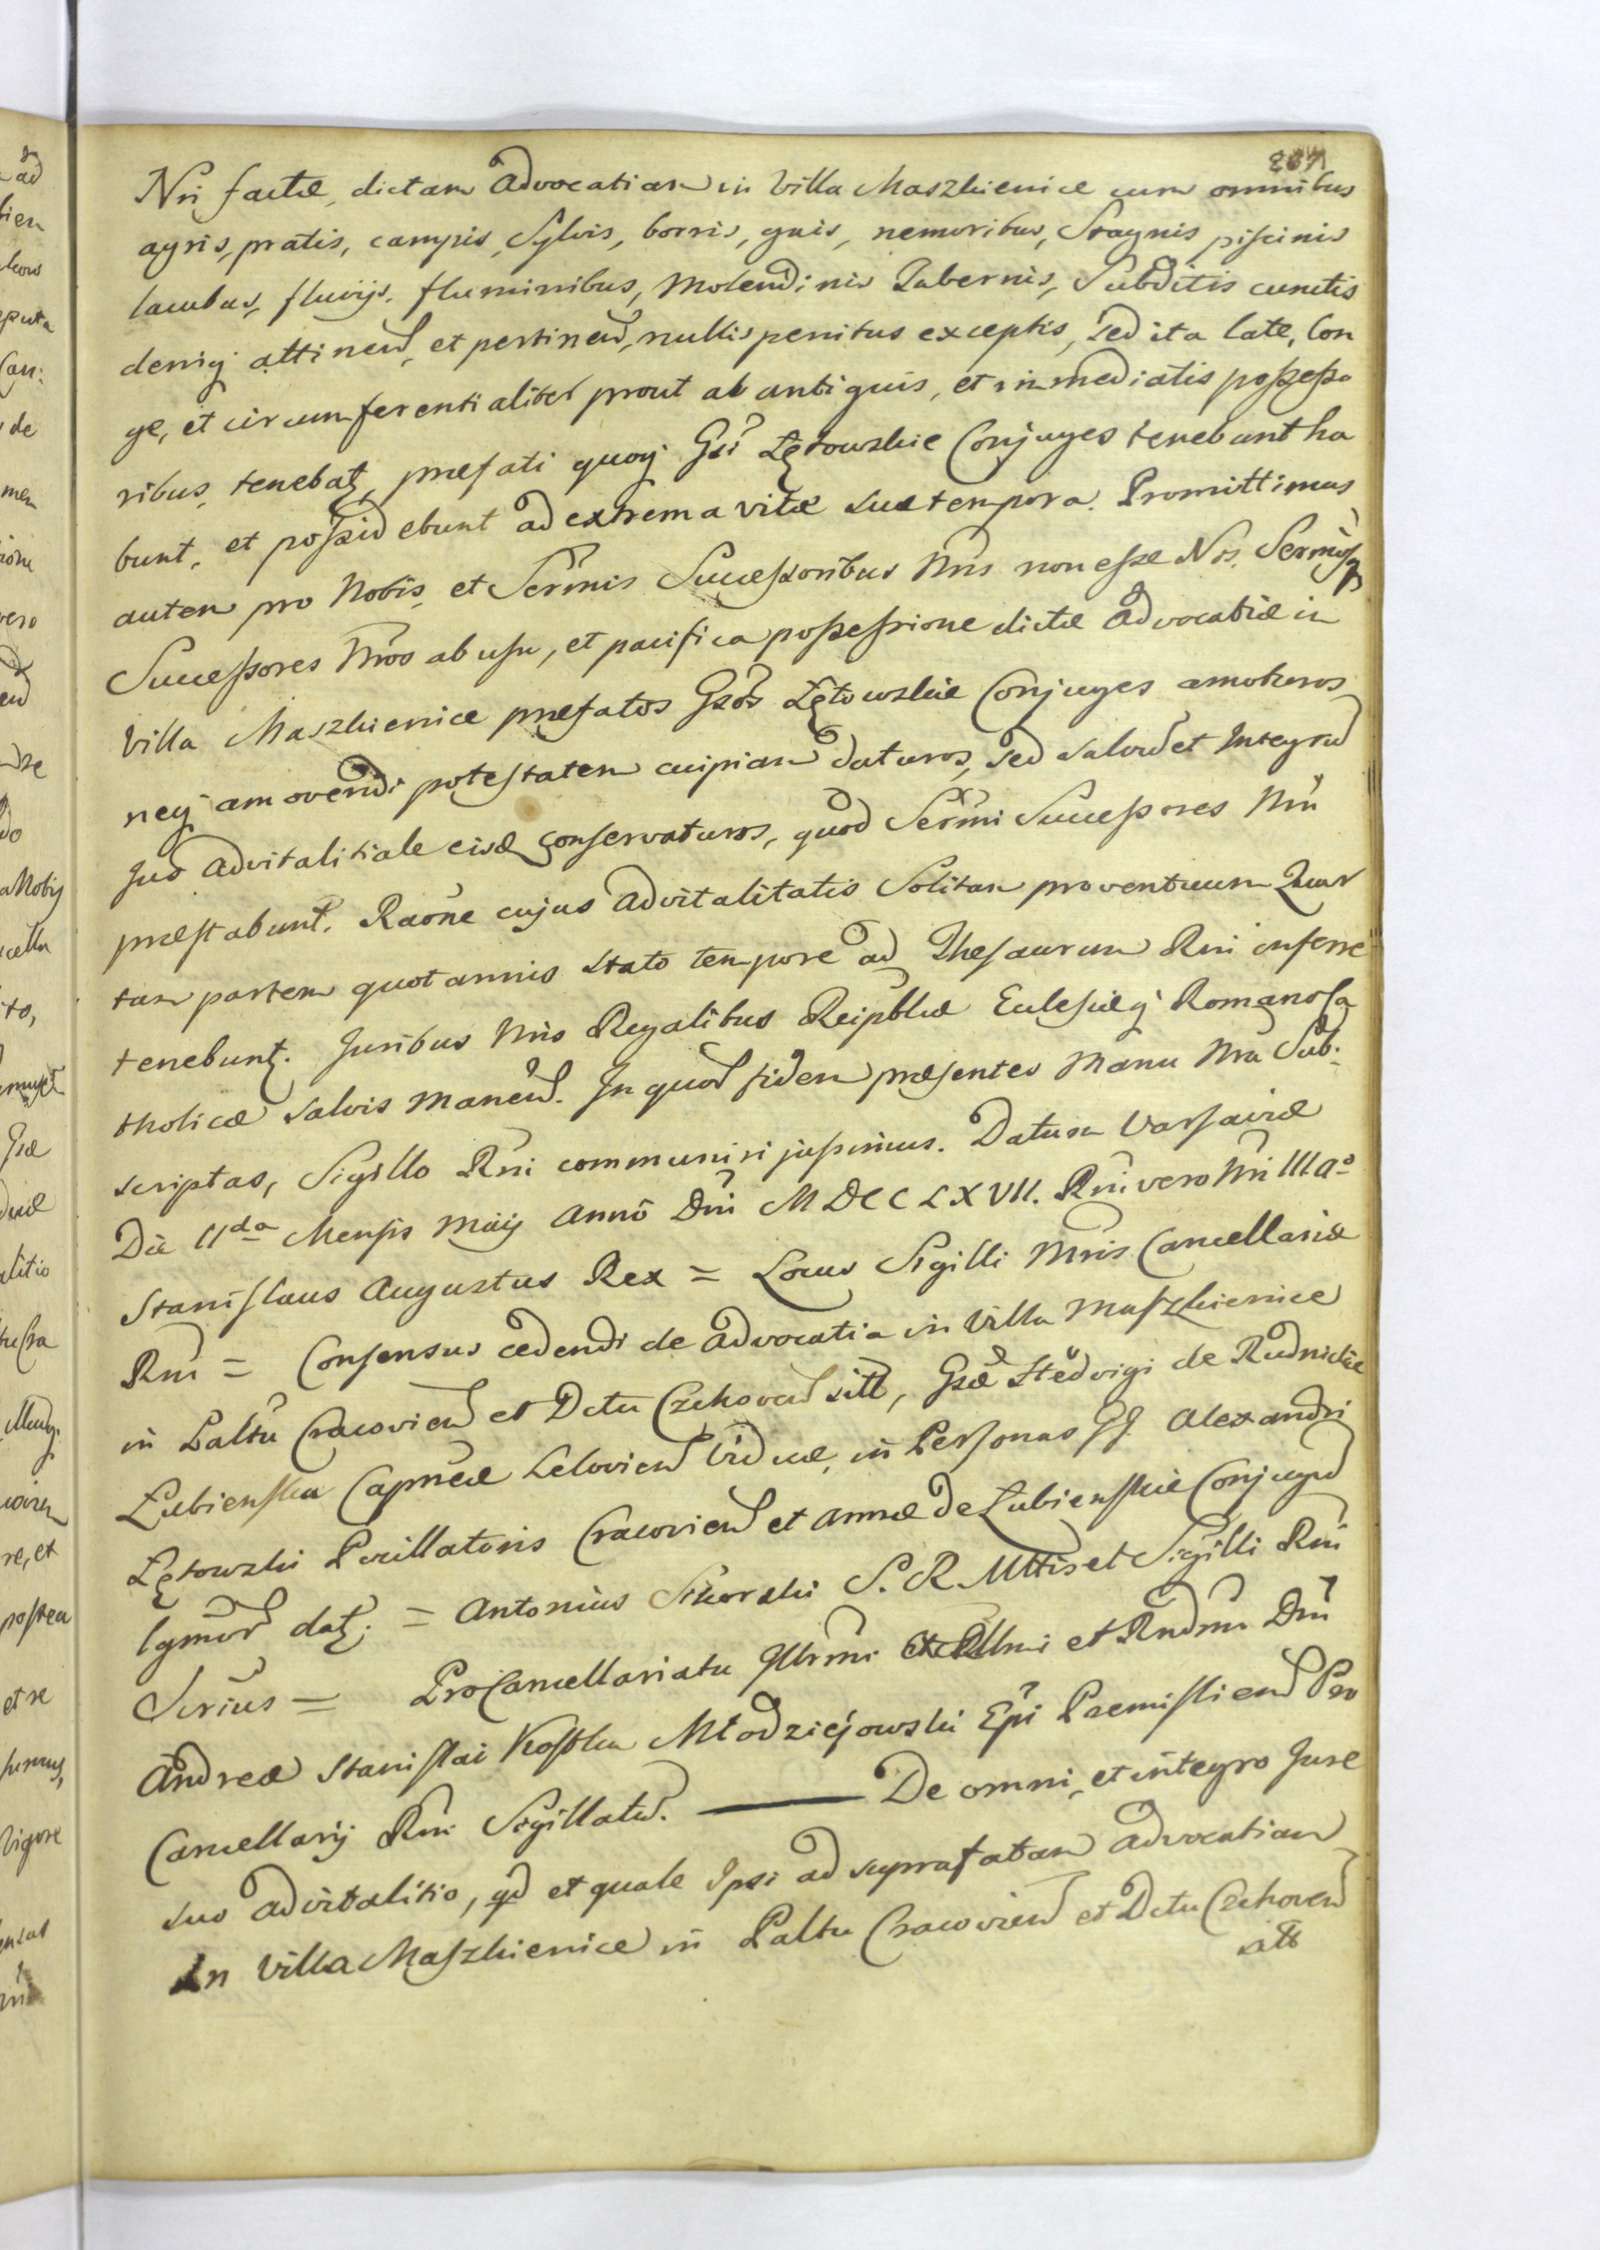 Nri factæ, dictam Advocatiam in Villa Maszkienice cum omnibus
agris, pratis, campis, Sylvis, borris, gais, nemoribus, Stagnis piscinis
lacubus, fluvijs, fluminibus, Molendinis Tabernis, Subditis cunctis
deniq attinend, et pertinend, nullis penitus exceptis, sed ita late, lon
ge, et circumferentialiter prout ab antiquis, et immediatis possesso
ribus, tenebat, præfati quoq Gsi Łętowskie Conjuges tenebunt ha
bunt, et possidebunt ad extrema vitæ suæ tempora. Promittimus
autem pro Nobis, et Sermis Successoribus Nris non esse Nos, Sermosq
Successores Nros ab usu, et pacifica possessione dictæ Advocatiæ in
Villa Maszkienice præfatos Gsos Łętowskie Conjuges amoturos
neq amovendi potestatem cuipiam daturos, sed salvu et Integru
Jus advitalitiale eisd conservaturos, quod Sermi Successores Nri
præstabunt. Raone cujus advitalitatis Solitam proventuum Quar
tam partem quotannis stato tempore ad Thesaurum Rni inferre
tenebunt. Juribus Nris Regalibus Reipblcæ Eclesiæq Romano Ca
tholicæ salvis manend. In quor fidem præsentes Manu Nra Sub:
scriptas, Sigillo Rni communiri jussimus. Datum Varsaviæ
Die 11da Mensis Maij Anno Dni MDCCLXVII. Rni vero Nri III Ao
Stanislaus Augustus Rex = Locus Sigilli Mris Cancellariæ
Rni = Consensus cedendi de advocatia in Villa Maszkienice
in Paltu Cracovien et Dctu Czchovien sitt, Gsæ Hedvigi de Rudnickie
Łubienska Capneæ Lelovien Viduæ, in Personas GG Alexandri
Łętowski Pocillatoris Cracovien et Annæ de Łubienskie Conjugu
lgmor dat. = Antonius Sikorski S. R. Mttis et Sigilli Rni
Scrius = Procancellariatu Illrmi Excellmi et Rndmi Dni
Andreæ Stanislai Kostka Młodziejowski Epi Præmislien Pro
Cancellarij Rni Sigillatu. ——— De omni, et integro Jure
suo advitalitio, qd et quale Ipsi ad suprafatam advocatiam
In Villa Maszkienice in Paltu Cracovien et Dctu Czchovien
sitt